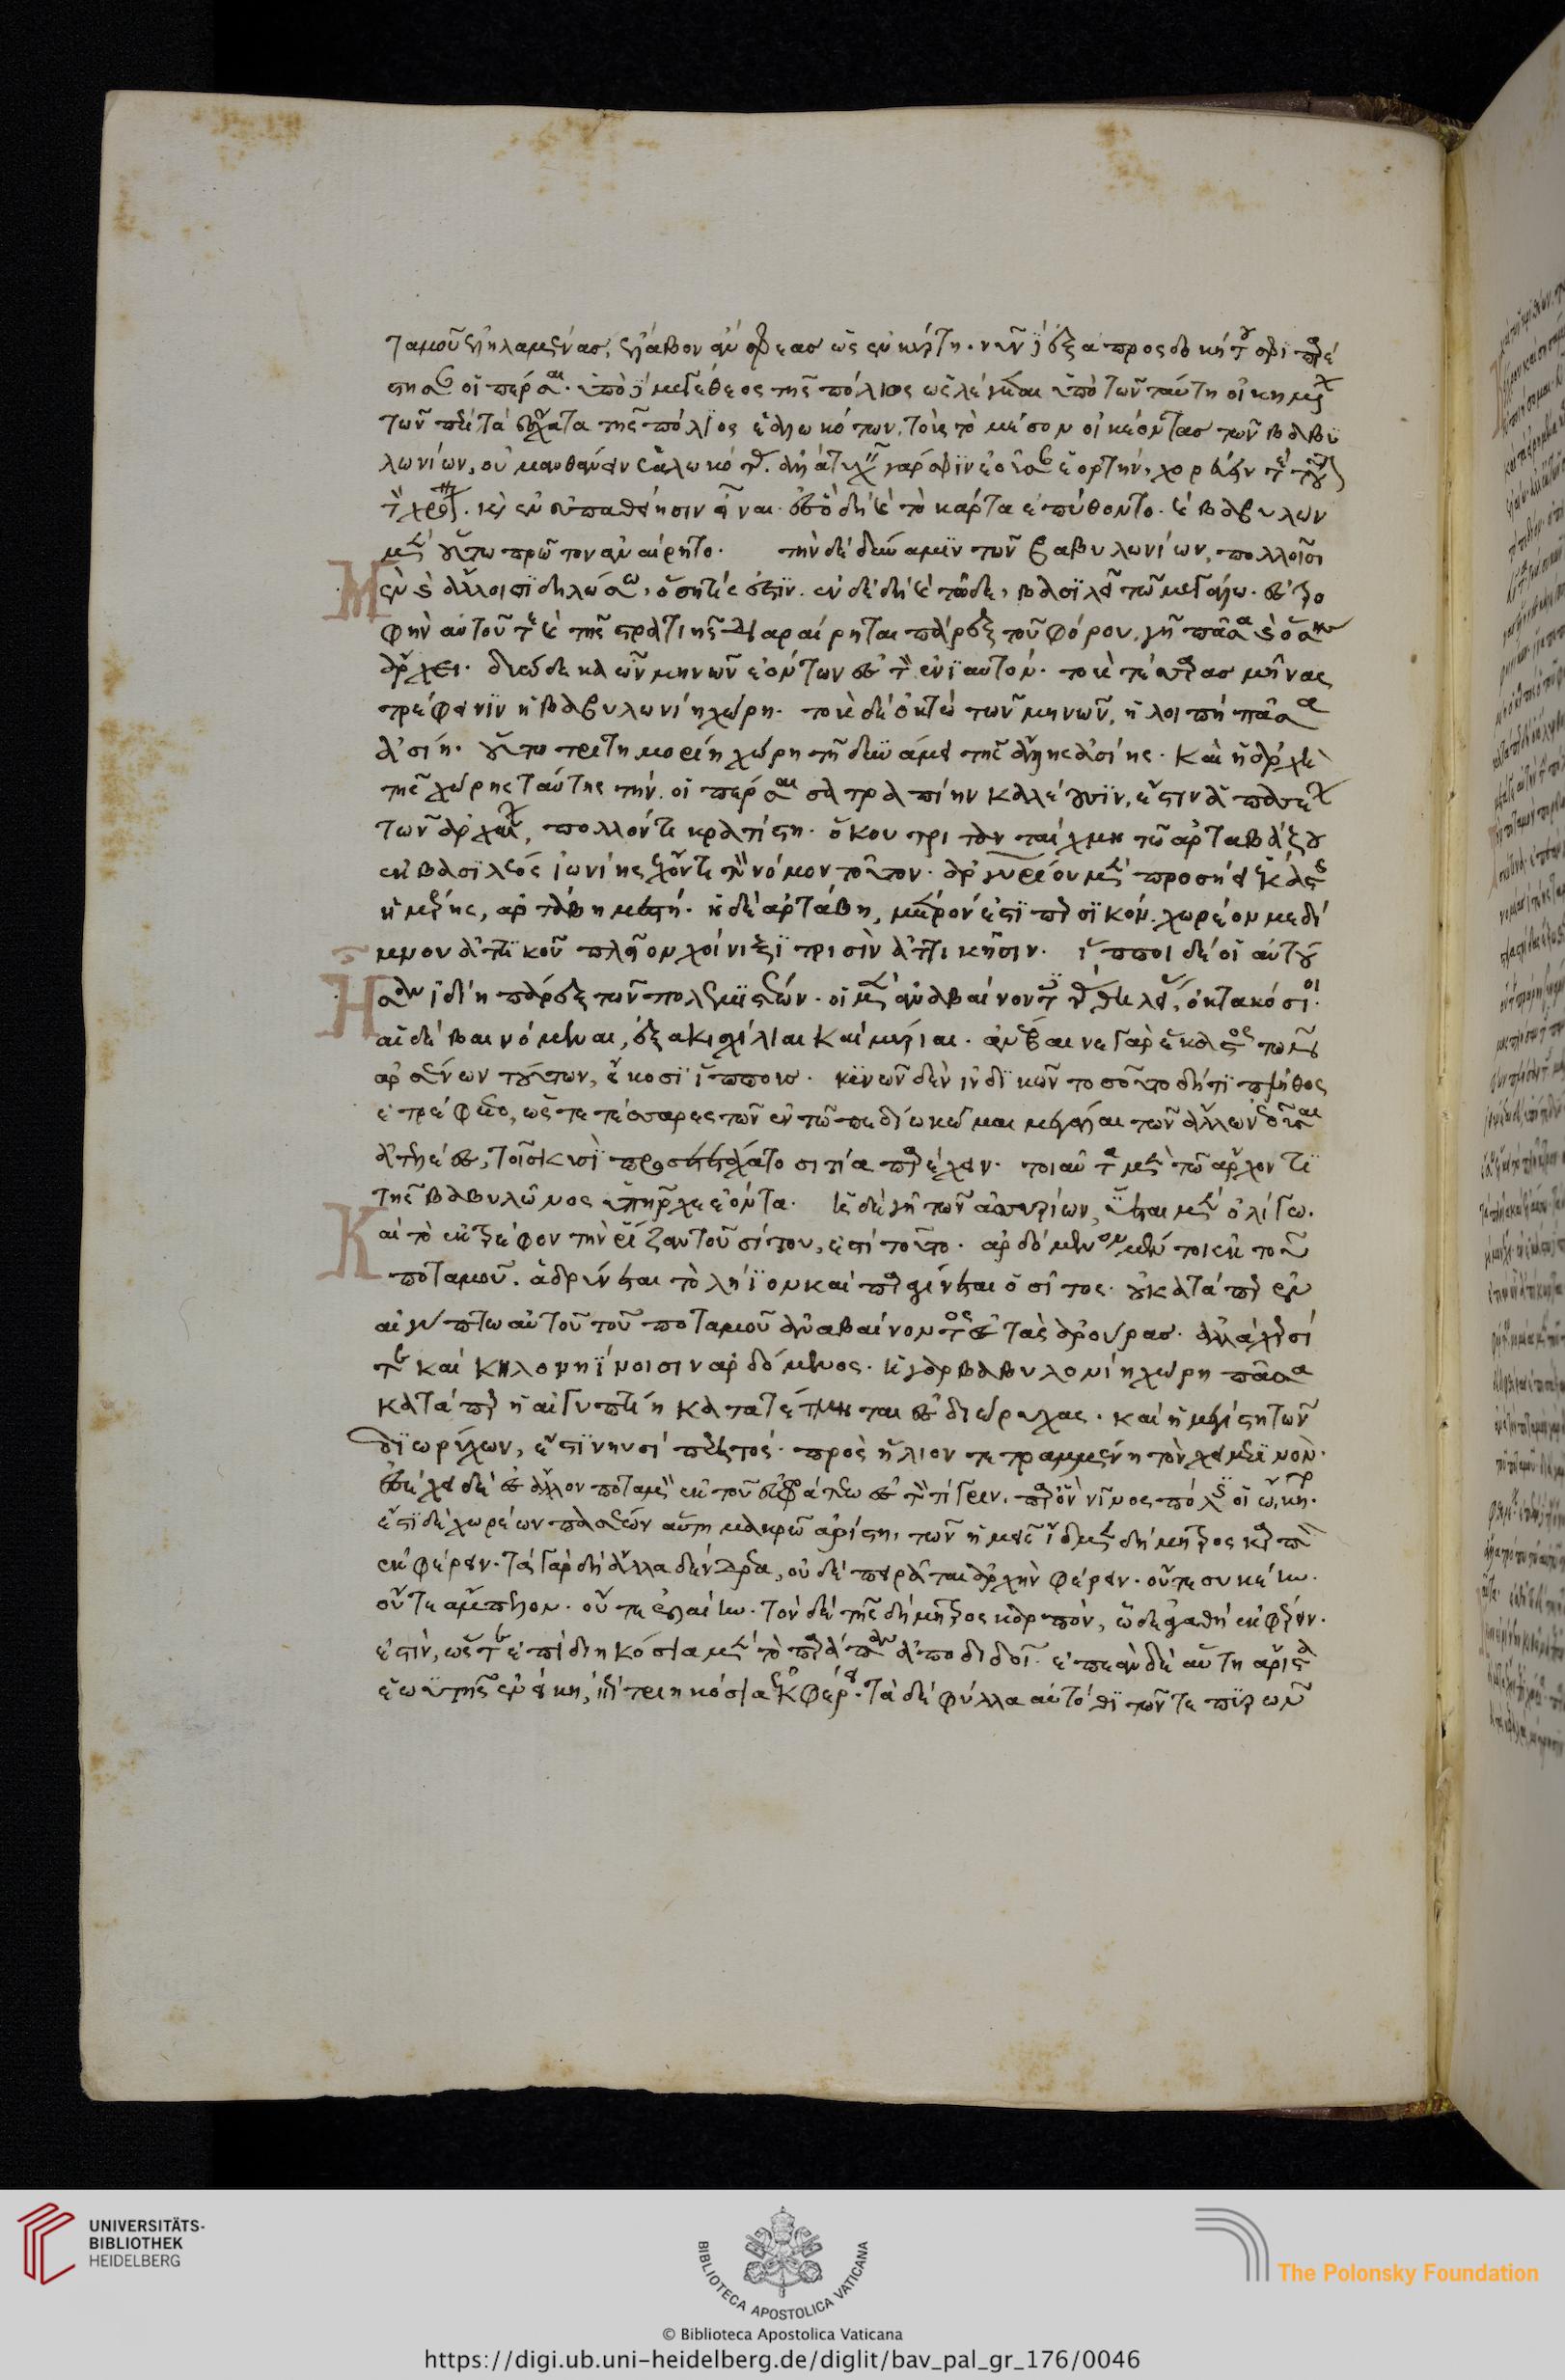 ταμοῦ ἐληλαμένας, ἔλαβον ἄν σφεας ὡς ἐν κύρτη. νῦν δὲ ἐξ ἀπροσδοκήτου σφι παρέ
στησαν οἱ πέρσαι. ὑπὸ δὲ μεγέθεος τῆς πόλιος ὡς λέγεται ὑπὸ τῶν ταύτη οἰκημένων
τῶν περὶ τὰ ἔσχατα τῆς πόλιος ἑαλωκότων, τοὺς τὸ μέσον οἰκέοντας τῶν βαβυ
λωνίων, οὐ μανθάνειν ἑαλωκότας. ἀλλὰ τυχεῖν γάρ σφιν ἐοῦσαν ἑορτήν, χορεύειν τε τοῦτον
τὸν χρόνον. καὶ ἐν εὐπαθείησιν εἶναι. ἐς ὃ δὴ καὶ τὸ κάρτα ἐπύθοντο. καὶ βαβυλὼν
μὲν οὕτω πρῶτον ἀναίρητο. τὴν δὲ δύναμιν τῶν βαβυλωνίων, πολλοῖσι
μὲν καὶ ἄλλοισι δηλώσω, ὅση τίς ἐστιν. ἐν δὲ δὴ καὶ τῶδε, βασιλεῖ τῶ μεγάλω. ἐς τρο
φὴν αὐτοῦ τε καὶ τῆς στρατιῆς διαραίρηται πάρεξ τοῦ φόρου, γῆ πᾶσα καὶ ὅσην
ἄρχει. δυώδεκα ὦν μηνῶν ἐόντων ἐς τὸν ἐνιαυτόν. τοὺς τέσσαρας μῆνας
τρέφει νιν ἡ βαβυλωνίη χώρη. τοὺς δὲ ὀκτὼ τῶν μηνῶν, ἡ λοιπὴ πᾶσα
ἀσίη. οὕτω τριτημορίη χώρη τῆ δυνάμει τῆς ἄλλης ἀσίης. Καὶ ἡ ἀρχὴ
τῆς χώρης ταύτης τὴν οἱ πέρσαι σατραπίην καλέουσιν, ἔστιν ἁπασέων
τῶν ἀρχέων, πολλόν τι κρατίστη. ὅκου τριτανταίχμη τῶ ἀρταβάζου
ἐκ βασιλέος ἰωνίης ἔχοντι τὸν νόμον τοῦτον. ἀργυρίου μὲν προσήει ἑκάστης
ἡμέρης, ἀρτάβη μεστή. ἡ δὲ ἀρτάβη, μέτρον ἐστὶ περσικόν. χωρέον μεδί
μνου ἀττικοῦ πλεῖον χοίνιξι τρισὶν ἀττικῆσιν. ἵπποι δέ οἱ αὐτοῦ
ἦσαν ἰδίη πάρεξ τῶν πολεμιστέων. οἱ μὲν ἀναβαίνοντες τὰς θηλείας, ὀκτακόσιοι.
αἱ δὲ βαινόμεναι, ἑξακισχίλιαι καὶ μύριαι. ἀνέβαινε γὰρ ἕκαστος τῶν
ἀρσένων τούτων, εἴκοσι ἵππους. κυνῶν δὲ ἰνδικῶν τοσοῦτο δή τι πλῆθος
ἐτρέφετο, ὥστε τέσσαρες τῶν ἐν τῶ πεδίω κῶμαι μεγάλαι τῶν ἄλλων ἐοῦσαι
ἀτελέες, τοῖσι κυσὶ προσετετάχατο σιτία παρέχειν. τοιαῦτα μὲν τῶ ἄρχοντι
τῆς βαβυλῶνος ὑπῆρχε ἐόντα. ἡ δὲ γῆ τῶν ἀσσυρίων, ὕεται μὲν ὀλίγω.
Καὶ τὸ ἐκτρέφον τὴν ῥίζαν τοῦ σίτου, ἐστὶ τοῦτο. ἀρδόμενον μέντοι ἐκ τοῦ
ποταμοῦ. ἁδρύνεται τὸ λήιον καὶ παραγίνεται ὁ σῖτος. οὐ κατάπερ ἐν
αἰγύπτω αὐτοῦ τοῦ ποταμοῦ ἀναβαίνοντος ἐς τὰς ἀρούρας. ἀλλὰ χερσί
τε καὶ κηλονηίοισιν ἀρδόμενος. ἡ γὰρ βαβυλωνίη χώρη πᾶσα
κατάπερ ἡ αἰγυπτίη κατατέτμηται ἐς διώρυχας. καὶ ἡ μεγίστη τῶν
διωρύχων, ἔστι νηυσὶ περητός. πρὸς ἥλιον τετραμμένη τὸν χειμερινόν.
ἐσέχει δὲ ἐς ἄλλον ποταμὸν ἐκ τοῦ εὐφράτεω ἐς τὸν τίγριν, παρ' ὃν νῖνος πόλις οἴκητο.
ἔστι δὲ χωρέων πασέων αὕτη μακρῶ ἀρίστη, τῶν ἡμεῖς ἴδμεν δήμητρος καρπὸν
ἐκφέρειν. τὰ γὰρ δὴ ἄλλα δένδρεα, οὐδὲ πειρᾶται ἀρχὴν φέρειν. οὔτε συκέην.
οὔτε ἄμπελον. οὔτε ἐλαίην. τὸν δὲ τῆς δήμητρος καρπὸν, ὧδε ἀγαθὴ ἐκφέρειν.
ἐστὶν, ὥστε ἐπὶ διηκόσια μὲν τὸ παράπαν ἀποδιδοῖ. ἐπεὰν δὲ αὕτη ἄριστα
ἑωυτῆς ἐνείκη, ἐπὶ τριηκόσια ἐκφέρει. τὰ δὲ φύλλα αὐτόθι τῶν τε πυρῶν
UNIVERSITÄTS-
BIBLIOTHEK
HEIDELBERG
BIBLIOTECA APOSTOLICA VATICANA
The Polonsky Foundation
© Biblioteca Apostolica Vaticana
https://digi.ub.uni-heidelberg.de/diglit/bav_pal_gr_176/0046